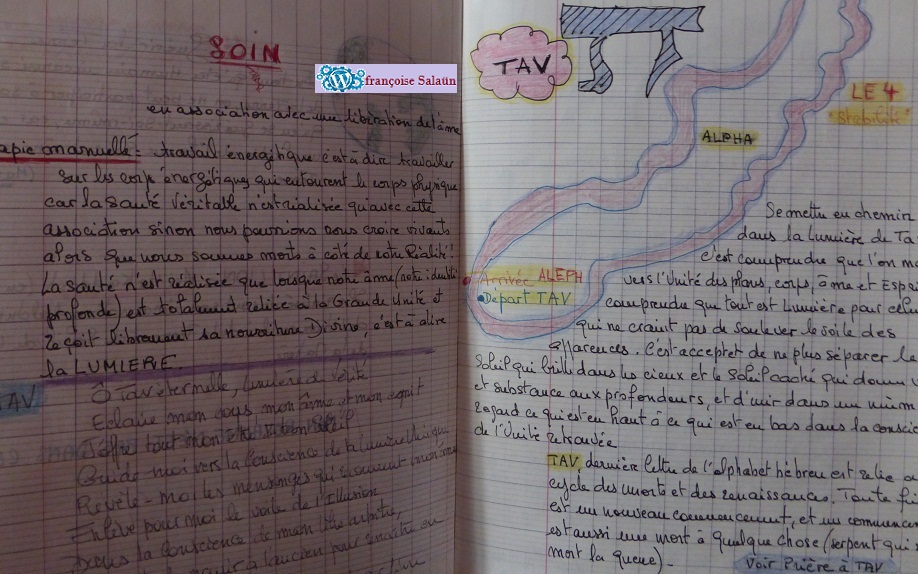 SOIN
françoise Salaün
en association avec une libération de l'âme
apie manuelle: travail énergétique c'est à dire travailler
sur les corps énergétiques qui entourent le corps physique
car la santé véritable n'est réalisée qu'avec cette
association sinon nous pourrions nous croire vivants
alors que nous sommes morts à côté de notre Réalité!
La santé n'est réalisée que lorsque notre âme (notre identité
profonde) est totalement reliée à la Grande Unité et
reçoit librement sa nourriture Divine, c'est à dire
la LUMIERE.
TAV
Ô Tav éternelle, lumière de vérité
Eclaire mon corps mon âme et mon esprit
J'offre tout mon être
Guide-moi vers la Conscience de la lumière
Révèle-moi les mensonges qui
Enlève pour moi le voile de l'Illusion
Dans la Conscience de mon libre arbitre,
l'ancien pour
TAV
ת
LE 4
"stabilité"
ALPHA
Arrivée ALEPH
Départ TAV
Se mettre en chemin
dans la lumière de Ta
c'est comprendre que l'on
vers l'Unité des plans, corps, âme et Esp
comprendre que tout est Lumière pour celu
qui ne craint pas de soulever le voile des
apparences. C'est accepter de ne plus séparer le
Soleil qui brille dans les cieux et le Soleil caché qui donne
et substance aux profondeurs, et d'unir dans un même
regard ce qui est en haut à ce qui est en bas dans la consc
de l'Unité retrouvée
TAV, dernière lettre de l'alphabet hébreu est reliée
cycle des morts et des renaissances. Toute fi
est un nouveau commencement, et un commence
est aussi une mort à quelque chose (serpent qui
mord la queue)-
Voir Prière à TAV